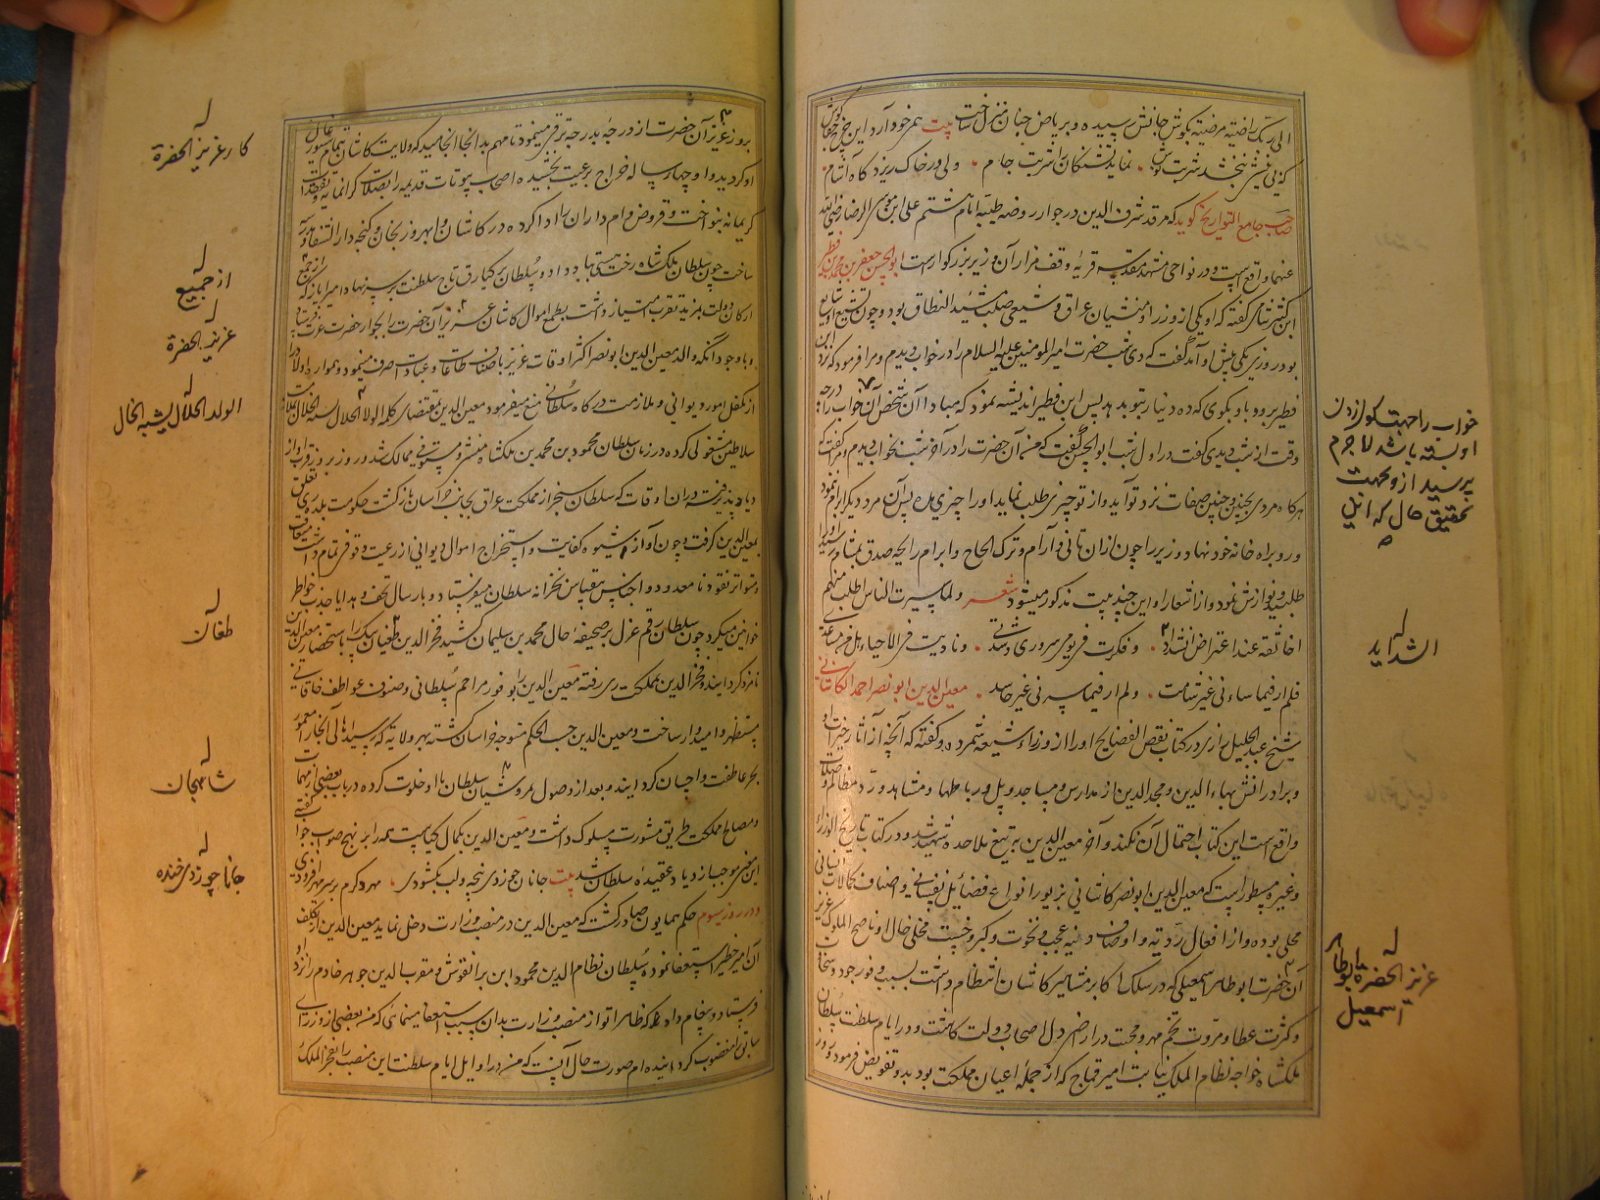 الی ربک راضیة مرضیة بگوش جانش رسیده و بریاض جنان منزل ساخت بیت هم خود آرد این چرخ
که بی نیش نبخشد شربت نوش . نماید تشنگان را شربت جام . ولی در خاک ریزد گاه آشام
صاحب جامع التواریخ گوید که مرقد شرف الدین در جوار روضه طیبه امام هشتم علی ابن موسی الرضا رضی الله
عنهما واقع است و در نواحی مشهد مقدسه قریه وقف مزار آن وزیر بزرگوار است ابو الحسن جعفر بن محمد بن فطیر
ابن کثیر شامی گفته که او یکی از وزرا و منشیان عراق و شیعی صلب شدید النطاق بود و چون تشیع او شایع
بود روزی یکی پیش او آمد گفت که دی شب حضرت امیر المومنین علیه السلام را در خواب دیدم و مرا فرمود که نزد ابن
فطیر برو و با او بگوی که ده دینار بتو بدهد پس ابن فطیر اندیشه نمود که مبادا آن شخص آن خواب را
وقت از شب دیدی گفت در اول شب ابو الحسن گفت که من آن حضرت را در آخر شب بخواب دیدم و مرا گفت که
هرگاه مردی بچنین و چنین صفات نزد تو آید و از تو چیزی طلب نماید او را چیزی مده پس آن مرد دیگر ابرام ننمود
و رو براه خانه خود نهاد وزیر را چون ازان تانی و آرام و ترک الحاح و ابرام رایحه صدق بمشام رسید او را
طلبید و نوازش نمود و از اشعار او این چند بیت مذکور میشود شعر ولما سبرت الناس اطلب منهم
اخا ثقة عند اعتراض الشدائد . وفکرت فی یومی سروری وشدتی . ونادیت فی الاحیاء هل من مساعد
فلم ار فیما ساءنی غیر شامت . ولم ار فیما سرنی غیر حاسد . معین الدین ابو نصر احمد الکاشانی
شیخ عبد الجلیل رازی در کتاب نقض الفضایح او را از وزراء شیعه شمرده و گفته که آنچه از آثار خیرات او
و برادرانش بهاء الدین و مجد الدین از مدارس و مساجد و پل و رباطها و مشاهد و رد مظالم و صلات
واقع است این کتاب احتمال آن نکند و آخر معین الدین بر تیغ ملاحده شهید شد و در کتاب تاریخ الوزراء
و غیره مسطور است که معین الدین ابو نصر کاشانی بزیور انواع فضایل نفسانی و اصناف کمالات انسانی
محلی بوده و از افعال ردیه و اوصاف دنیه عجب و نخوت و کبر و خست مخلی خال او ناصح الملوک عزیز
آن حضرت ابو طاهر اسمعیل که در سلک اکابر مشاهیر کاشان انتظام داشت بسبب وفور جود و سخا
و کثرت عطا و مروت تخم مهر و محبت در اراضی دل اصحاب دولت کاشت و در ایام سلطنت سلطان
ملکشاه خواجه نظام الملک نیابت امیر قماج که از جمله اعیان مملکت بود بدو تفویض فرمود و روز
خواب را جهت گول زدن
او بسته باشد لا جرم
پرسید از و جهت
تحقیق حال که اینک
الشداید
عزیز الحضرة ابو طاهر
اسمعیل
بروز عزیز آن حضرت از درجه بدرجه ترقی مینمود تا مهم بدانجا انجامید که ولایت کاشان تمام
او گردید و او چهار ساله خراج برعیت بخشیده اصحاب بیوتات قدیمه را بصلات گرانمایه و تفقدات
کریمانه بنواخت و قروض وام داران را ادا کرده در کاشان و ابهر و زنجان و گنجه دار الشفا و مدرسه
ساخت چون سلطان ملکشاه رخت هستی بباد داد و سلطان برکیارق تاج سلطنت بر سر نهاد امیر ایاز که از جمیع
ارکان دولت بمزید تقرب امتیاز داشت بطمع اموال کاشان عزیز آن حضرت را بجوار حضرت عزت فرستاد
و با وجود آنکه والد معین الدین ابو نصر اکثر اوقات عزیز باصناف طاعات و عبادات صرف مینمود و همواره اولاد را
از تکفل امور دیوانی و ملازمت درگاه سلطانی منع میفرمود معین الدین بمقتضای کلمه الولد الحلال یشبه الخال ملازمت
سلاطین مشغولی کرده در زمان سلطان محمود بن محمد بن ملکشاه منشی و مستوفی ممالک شد و روز بروز قرب او از
دیاد پذیرفته دران اوقات که سلطان سنجر از مملکت عراق بجانب خراسان بازگشت حکومت بلده ری تعلق
بمعین الدین گرفت و چون آواز شیوه کفایت و استخراج اموال دیوانی از رعیت وقوفی تمام داشت
متواتر نقود نامعدود و اجناس بیقیاس بخزانه سلطان میفرستاد و بارسال تحف و هدایا جذب خواطر
خواتین میکرد چون سلطان رقم عزل بر صحیفه حال محمد بن سلیمان کشید فخر الدین طغان بیک را باستحضار معین الدین
نامزد گردانید و فخر الدین بمملکت ری رفته معین الدین را بوفور مراحم سلطانی و صنوف عواطف خاقانی
مستظهر و امیدوار ساخت و معین الدین حسب الحکم متوجه خراسان گشته بهر ولایة که رسید اهالی آنجا را
بحر عاطفت و احسان گردانید و بعد از وصول بمرو شاهجان سلطان با او خلوت کرده در باب بعضی از مهمات
و مصالح مملکت طریق مشورت مسلوک داشت و معین الدین بکمال کیاست همه را بر نهج صواب جواب گفته
این معنی موجب ازدیاد عقیده سلطان شد بیت جانان چو زدی پنجه و لب بگشودی . مهر و کرم بر سر مهر افزودی
و در روز سوم حکم همایون صادر گشت که معین الدین در منصب وزارت دخل نماید معین الدین از تکلف
آن امر خطیر استعفا نموده سلطان نظام الدین محمود ابن برانقوش و مقرب الدین جوهر خادم را نزد او
فرستاد و پیغام داد که ظاهرا تو از منصب وزارت بدان سبب استعفا مینمائی که من بعضی از وزرای
سابق را منصوب گردانیده ام صورت حال آنست که من در اوایل ایام سلطنت این منصب را بفخر الملک
کار عزیز الحضرة
از جمیع
عزیز الحضرة
الولد الحلال یشبه الخال
طغان
شاهجان
جانا چو زدی خنده